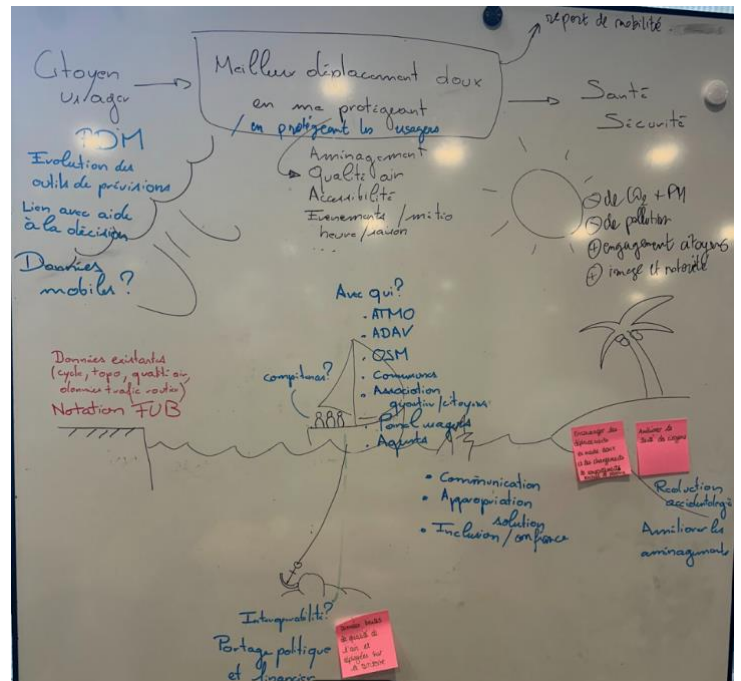 report de mobilité
Citoyen
usager
Meilleur déplacement doux
en me protégeant
/ en protégeant les usagers
Santé
Sécurité
PDM
Evolution des
outils de prévisions
Lien avec aide
à la décision
Données
mobiles?
Aménagement
Qualité air
Accessibilité
Evenements / météo
heure/saison
...
⊖ de CO2 + PM
⊖ de pollution
⊕ engagement citoyens
⊕ image et notoriété
Avec qui?
• ATMO
• ADAV
• OSM
• Communes
• Association
quartier/citoyens
• Panel usagers
• Agents
compétences?
Données existantes
(cycle, topo, qualité air,
données trafic routier)
Notation FUB
• Communication
• Appropriation
solution
• Inclusion / confiance
Encourager les
déplacements
en mode doux
Améliorer la
santé du citoyen
Réduction
accidentologie
Améliorer les
aménagements
Interopérabilité?
Portage politique
et financier
Données
de qualité de
l'air et